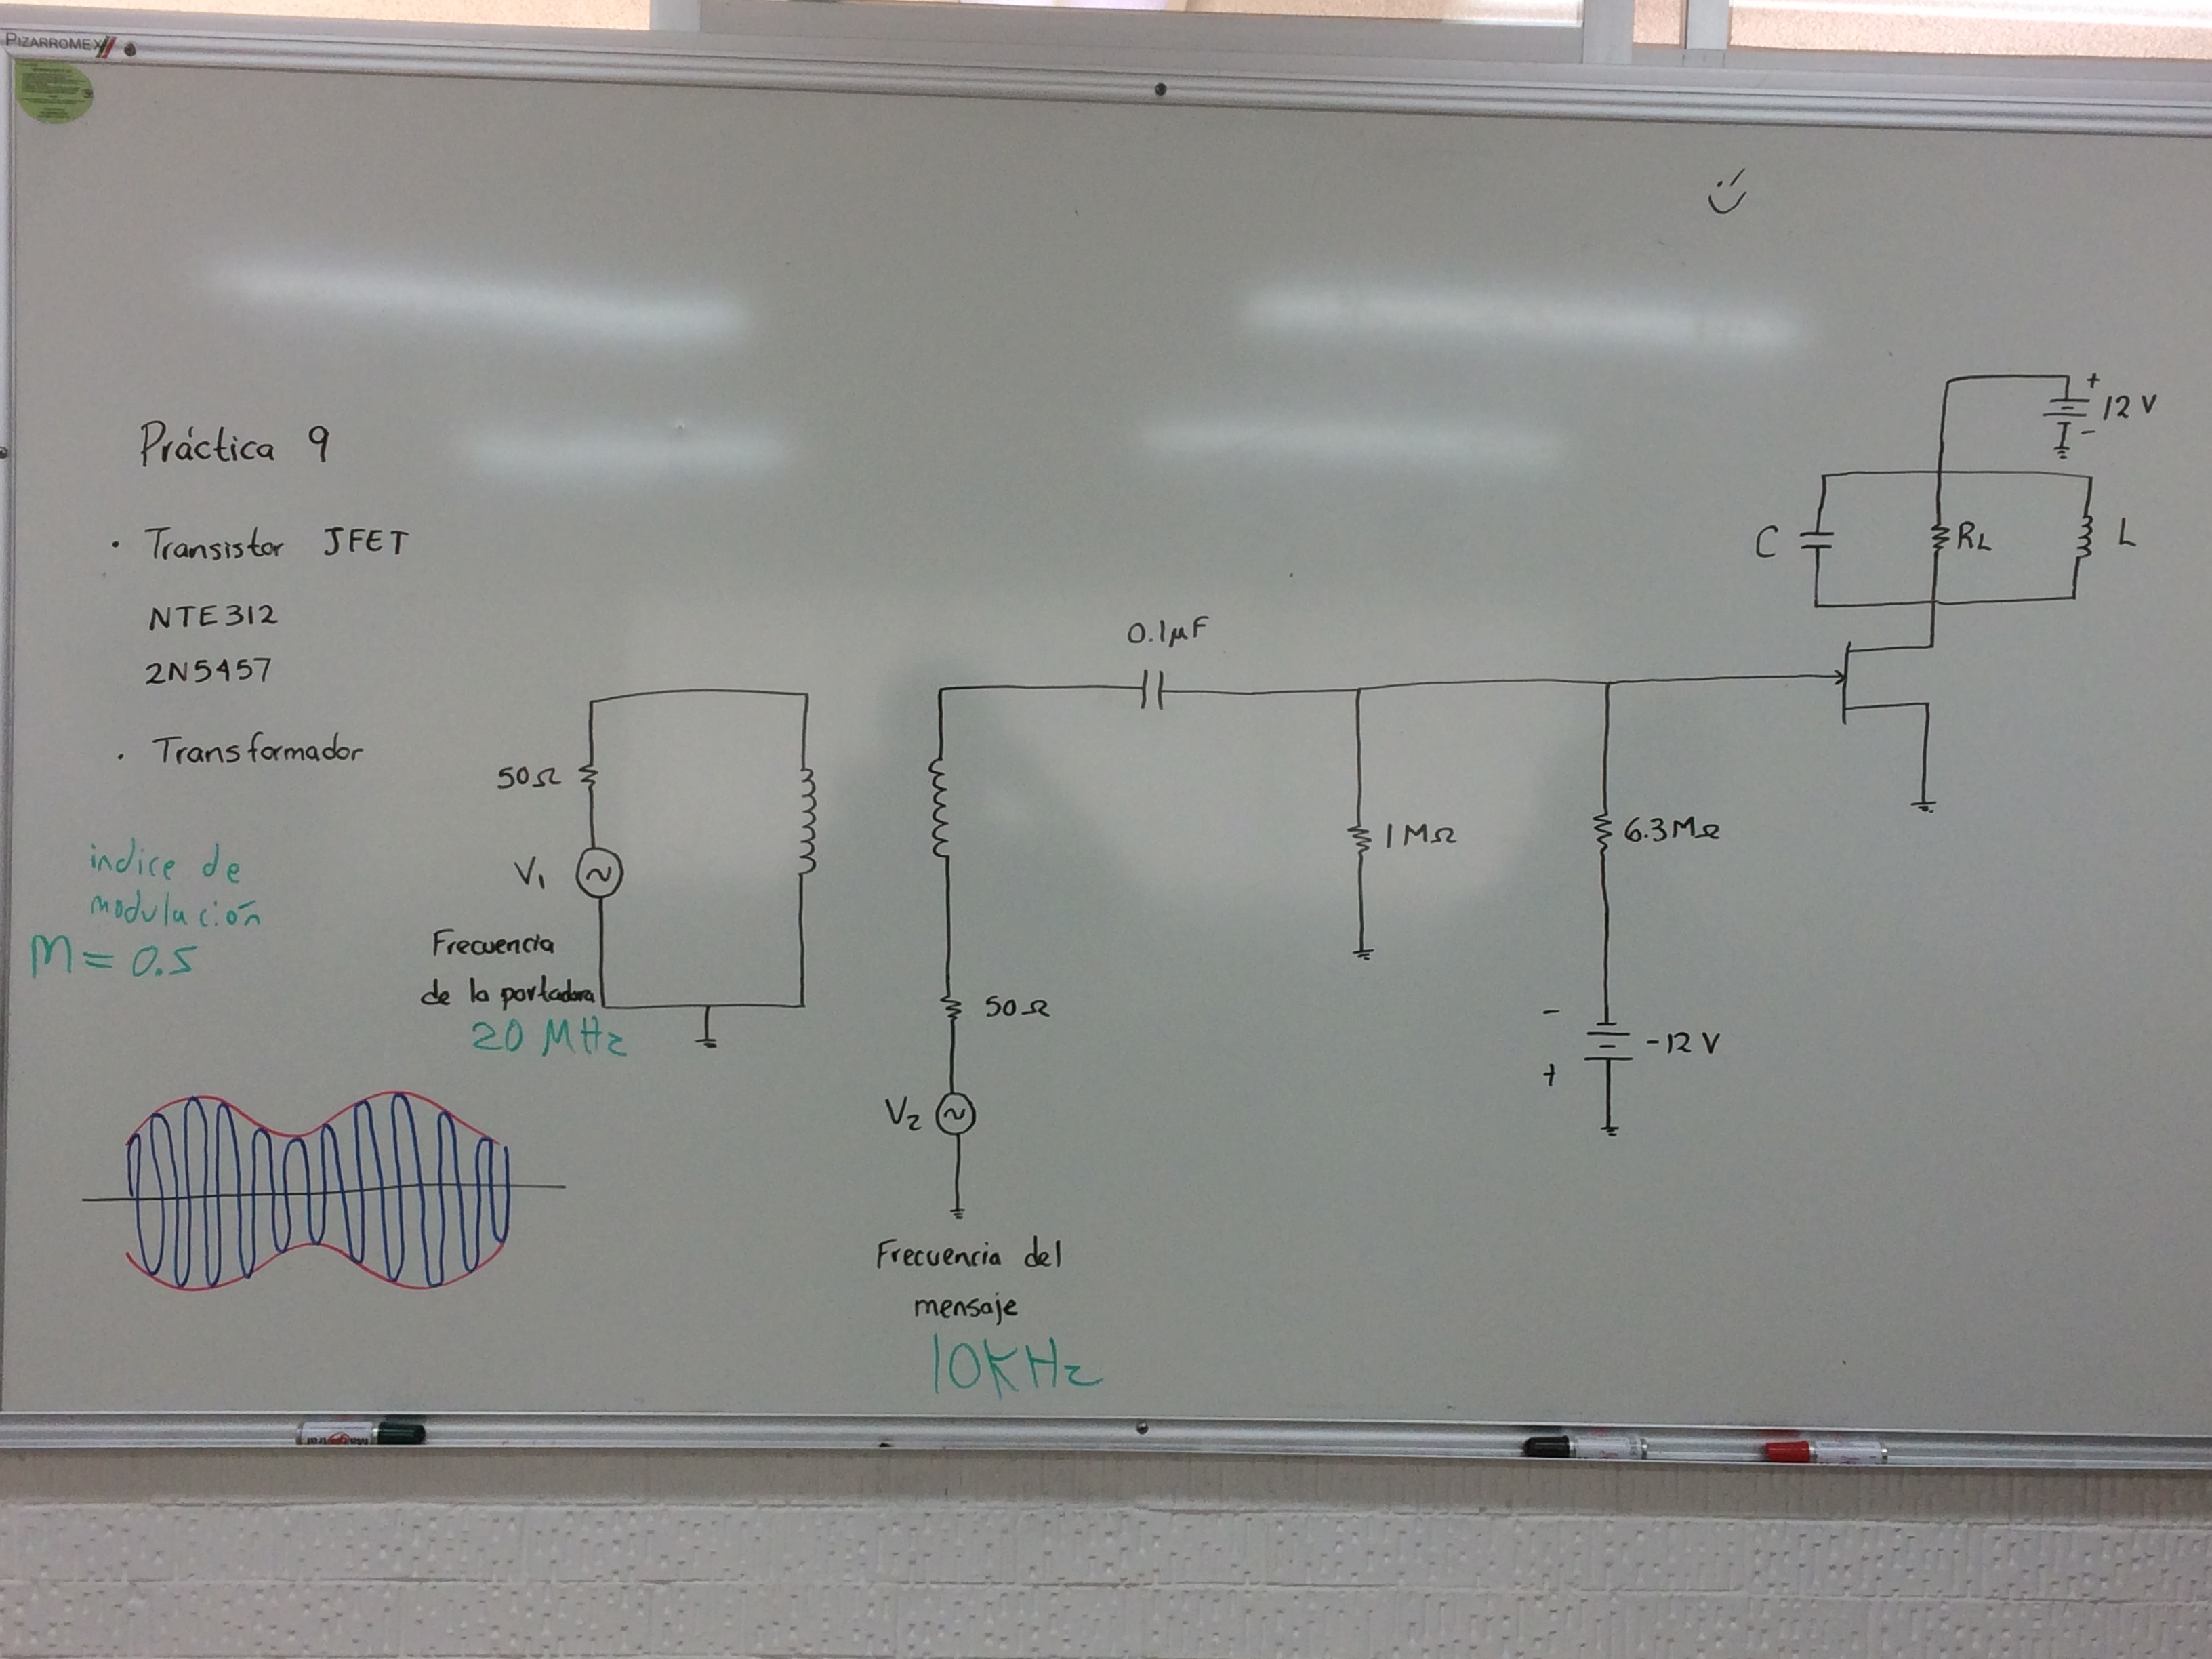 PIZARROMEX
Práctica 9
· Transistor JFET
NTE312
2N5457
· Transformador
indice de
modulación
M = 0.5
50Ω
V₁
Frecuencia
de la portadora
20 MHz
0.1µF
50Ω
V₂
Frecuencia del
mensaje
10KHz
1MΩ
6.3MΩ
-
-12 V
+
C
RL
L
+
12 V
-